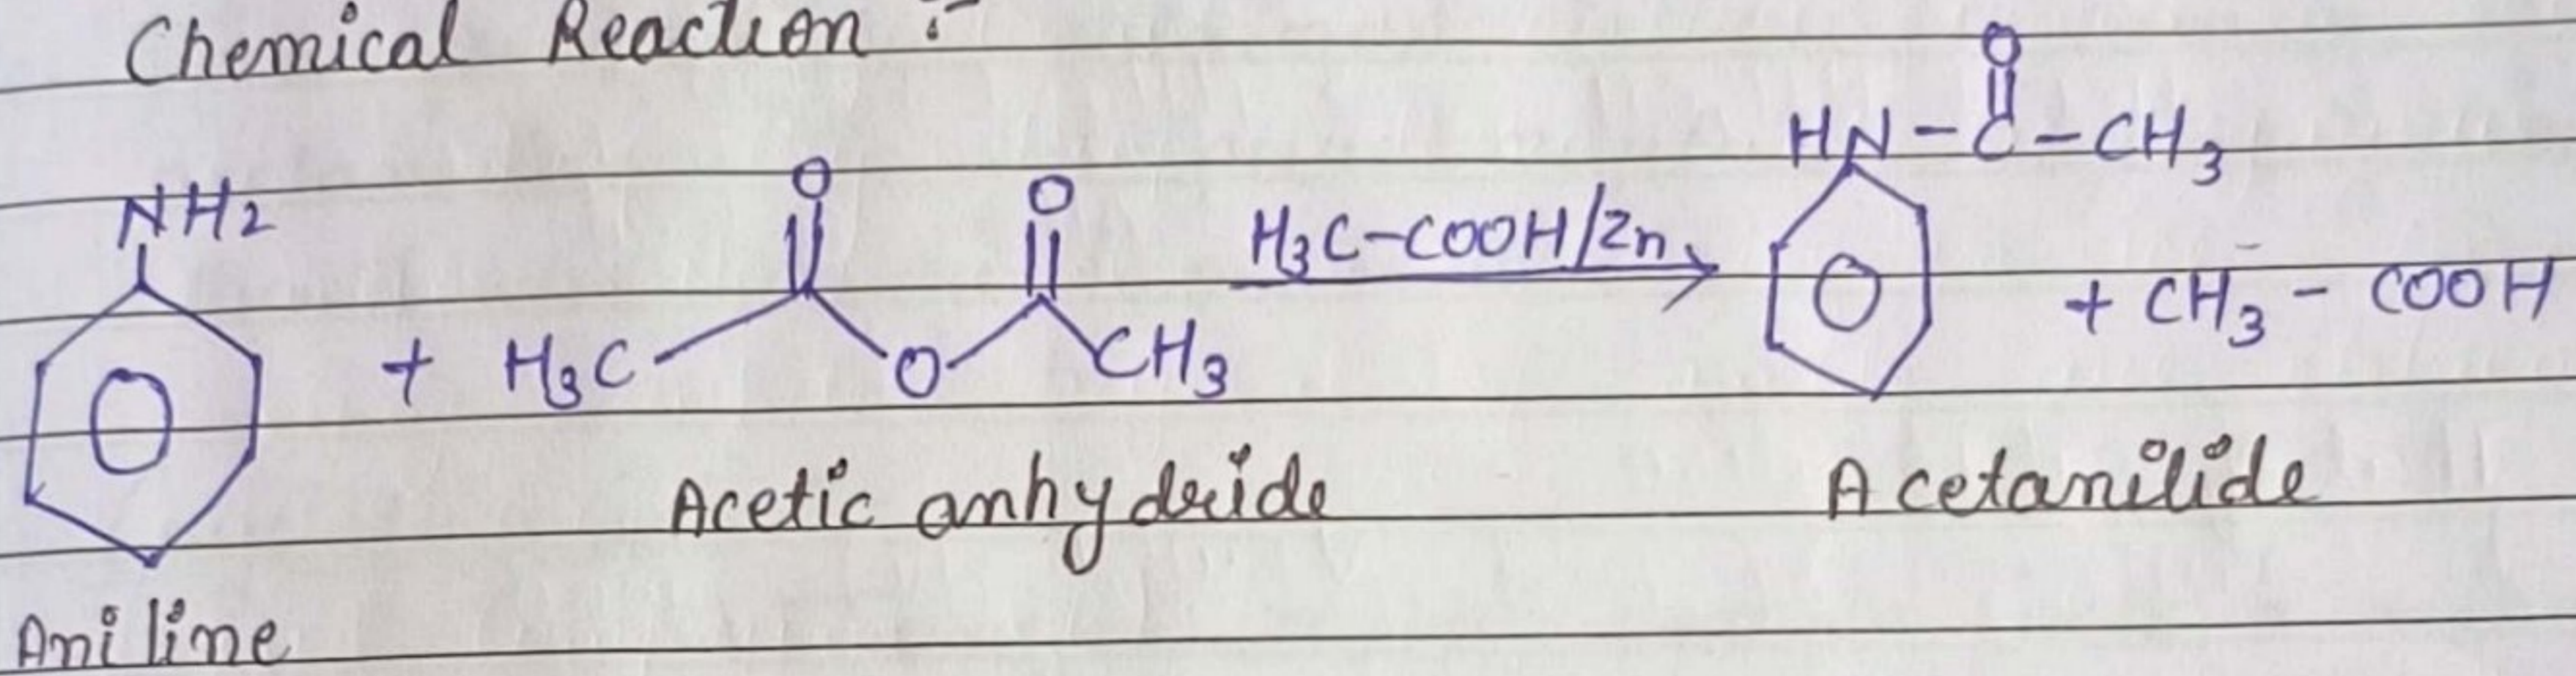 Chemical Reaction :-
NH2 + H3C O O O CH3 H3C-COOH/Zn HN-C-CH3 O + CH3 - COOH
Acetic anhydride Acetanilide
Aniline